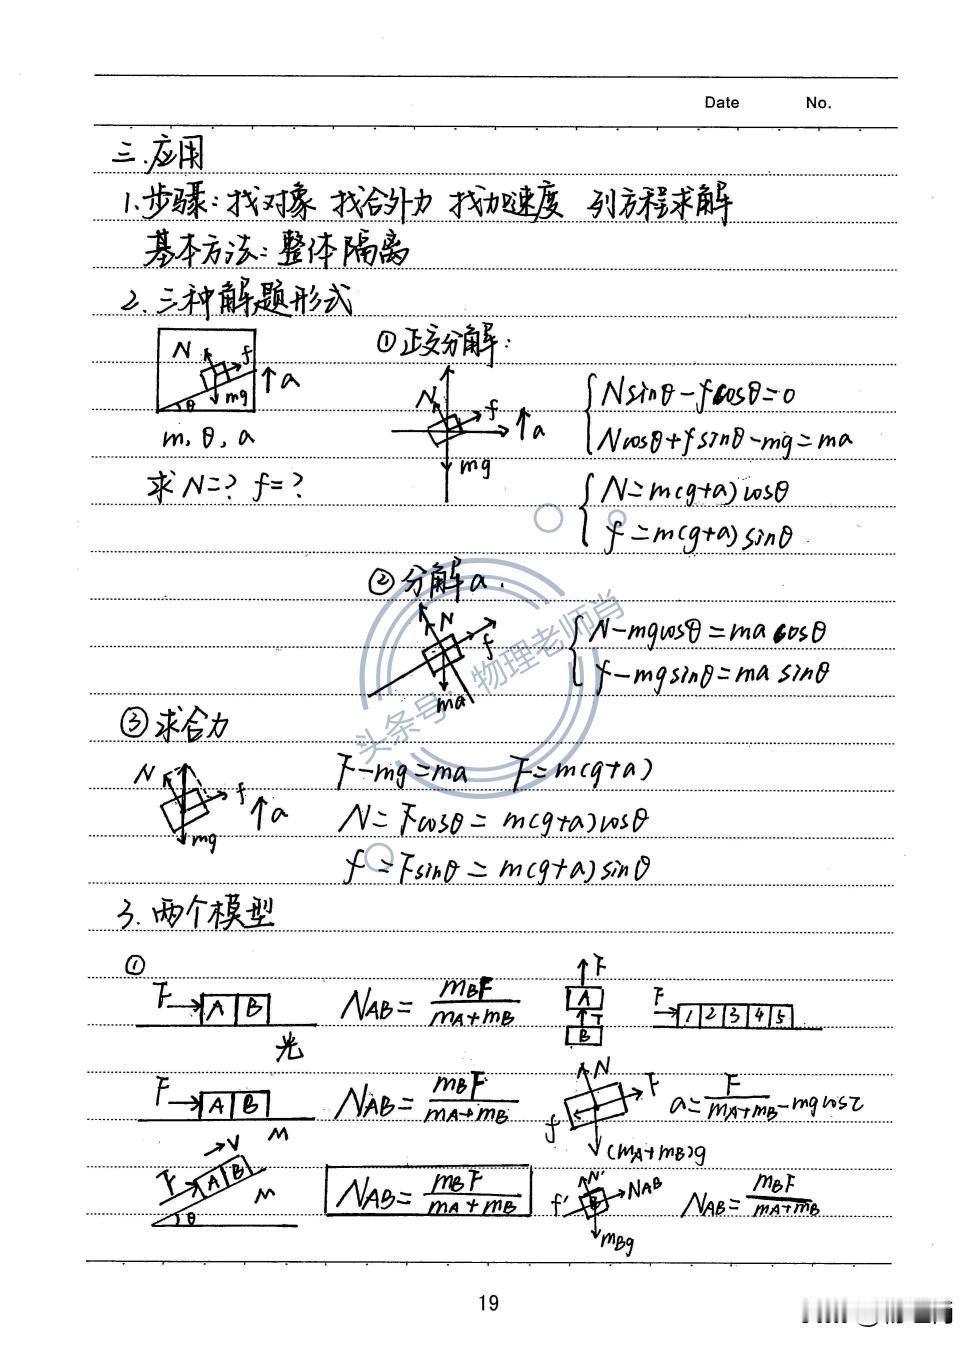 Date No.
三.应用
1.步骤:找对象 找合外力 找加速度 列方程求解
基本方法:整体隔离
2.三种解题形式
N f a mg θ
m, θ, a
求 N=? f=?
①正交分解:
N f a mg
Nsinθ-fcosθ=0
Ncosθ+fsinθ-mg=ma
N=m(g+a)cosθ
f=m(g+a)sinθ
②分解a.
N f ma
N-mgcosθ=ma cosθ
f-mgsinθ=ma sinθ
头条号:物理老师肖
③求合力
N f a mg
F-mg=ma F=m(g+a)
N=Fcosθ=m(g+a)cosθ
f=Fsinθ=m(g+a)sinθ
3.两个模型
①
F A B 光
NAB=mBF/(mA+mB)
F A T B
F 1 2 3 4 5
F A B M
NAB=mBF/(mA+mB)
N F f (mA+mB)g
a=F/(mA+mB)-mgcosτ
F A B V M θ
NAB=mBF/(mA+mB)
N' f' B NAB mBg
NAB=mBF/(mA+mB)
19